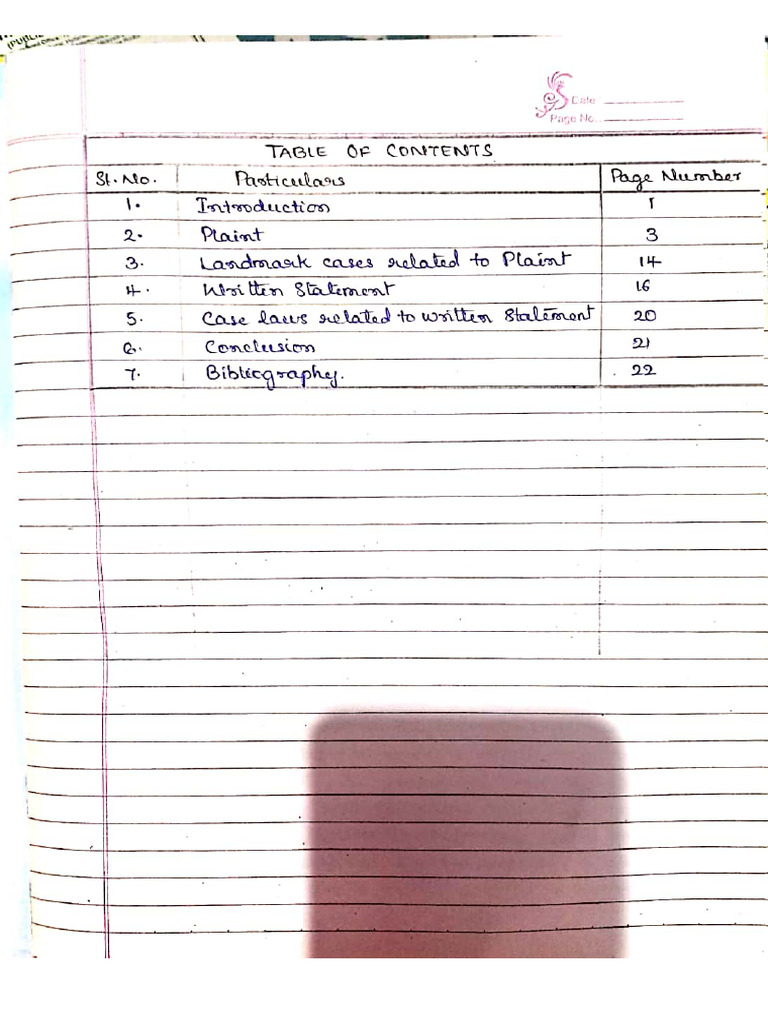 (PUBLIC
Date
Page No.
TABLE OF CONTENTS
Sr. No. Particulars Page Number
1. Introduction 1
2. Plaint 3
3. Landmark cases related to Plaint 14
4. Written Statement 16
5. Case laws related to written Statement 20
6. Conclusion 21
7. Bibliography. 22